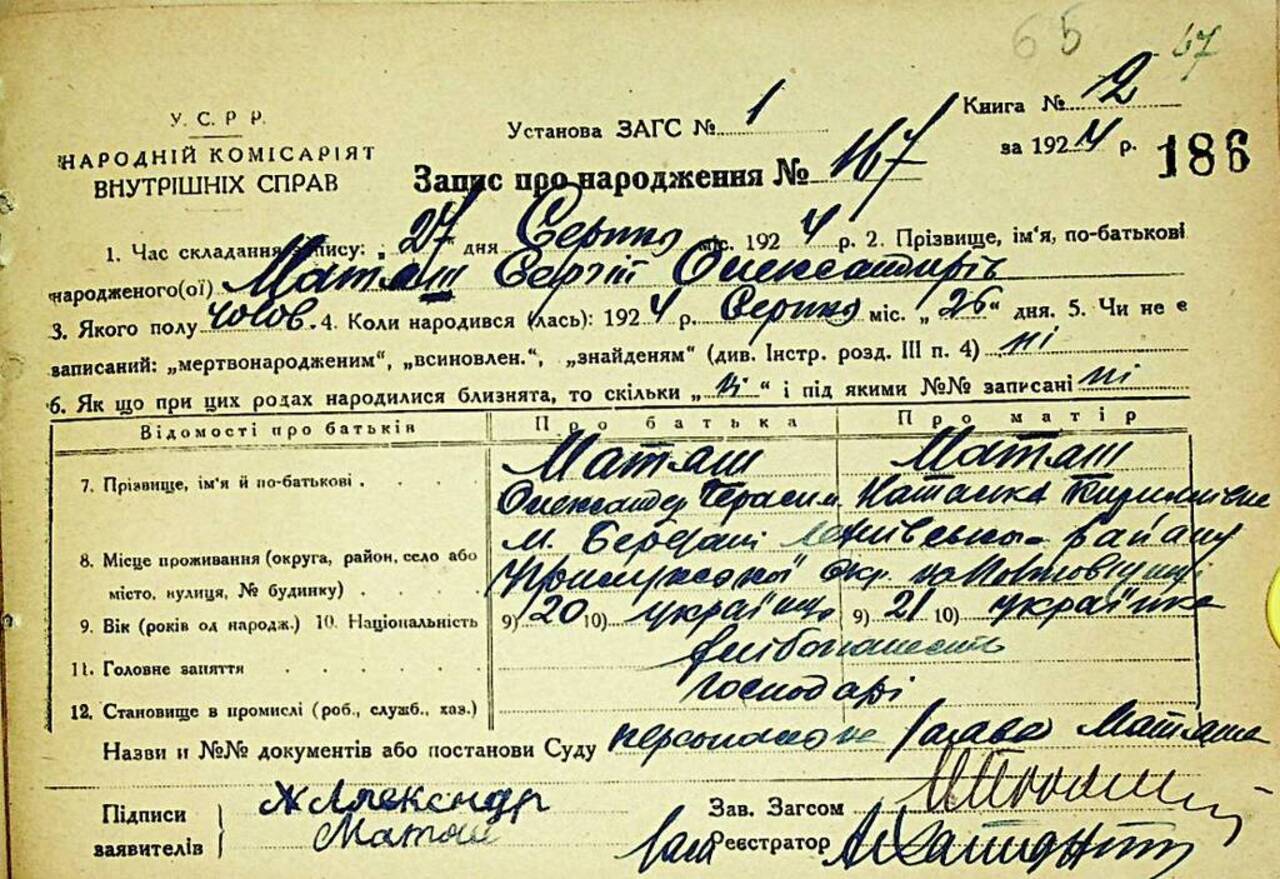 65 67
У. С. Р. Р.
НАРОДНІЙ КОМІСАРІЯТ
ВНУТРІШНІХ СПРАВ
Установа ЗАГС № 1
Книга № 2
за 1924 р.
186
Запис про народження № 167
1. Час складання запису: „27“ дня Серпня міс. 1924 р. 2. Прізвище, ім'я, по-батькові
народженого(ої) Матяш Сергій Олександрів
3. Якого полу чолов. 4. Коли народився (лась): 1924 р. Серпня міс. „26“ дня. 5. Чи не є
записаний: „мертвонародженим“, „всиновлен.“, „знайденям“ (див. Інстр. розд. III п. 4) ні
6. Як що при цих родах народилися близнята, то скільки „ні“ і під якими №№ записані ні
Відомості про батьків Про батька Про матір
7. Прізвище, ім'я й по-батькові . Матяш Матяш
Олександер Герасим. Наталка
8. Місце проживання (округа, район, село або м. Березані району
місто, вулиця, № будинку) . Прилуцької Окр. на Полтавщині
9. Вік (років од народж.) 10. Національність 9) 20 10) українць 9) 21 10) українка
11. Головне заняття хліборобство
12. Становище в промислі (роб., служб., хаз.) господарі
Назви и №№ документів або постанови Суду персональне Матяша
Підписи
заявителів
Александр
Матяш
Зав. Загсом
Реєстратор